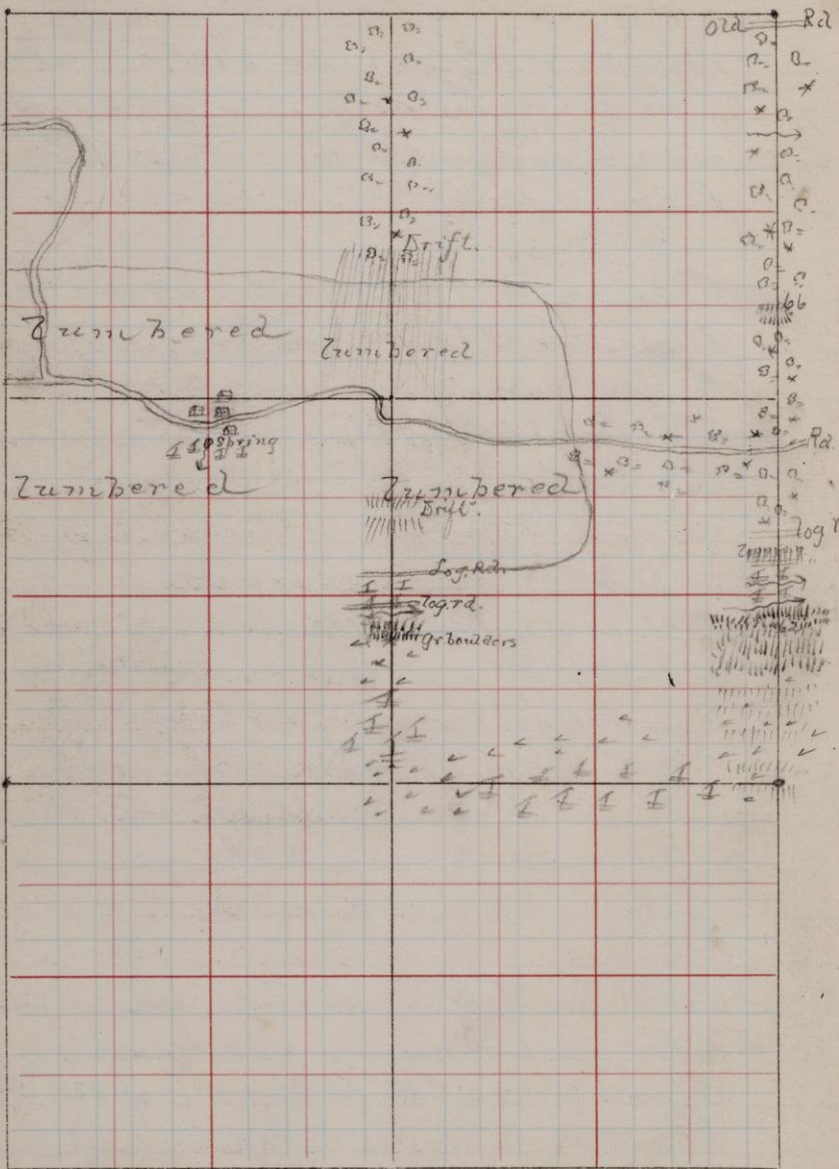 Old Rd
Drift.
66
Lumbered
Lumbered
Spring
Rd.
Lumbered
Lumbered
Drift.
Log
Log. Rd.
log. rd.
62
Gr. boulders